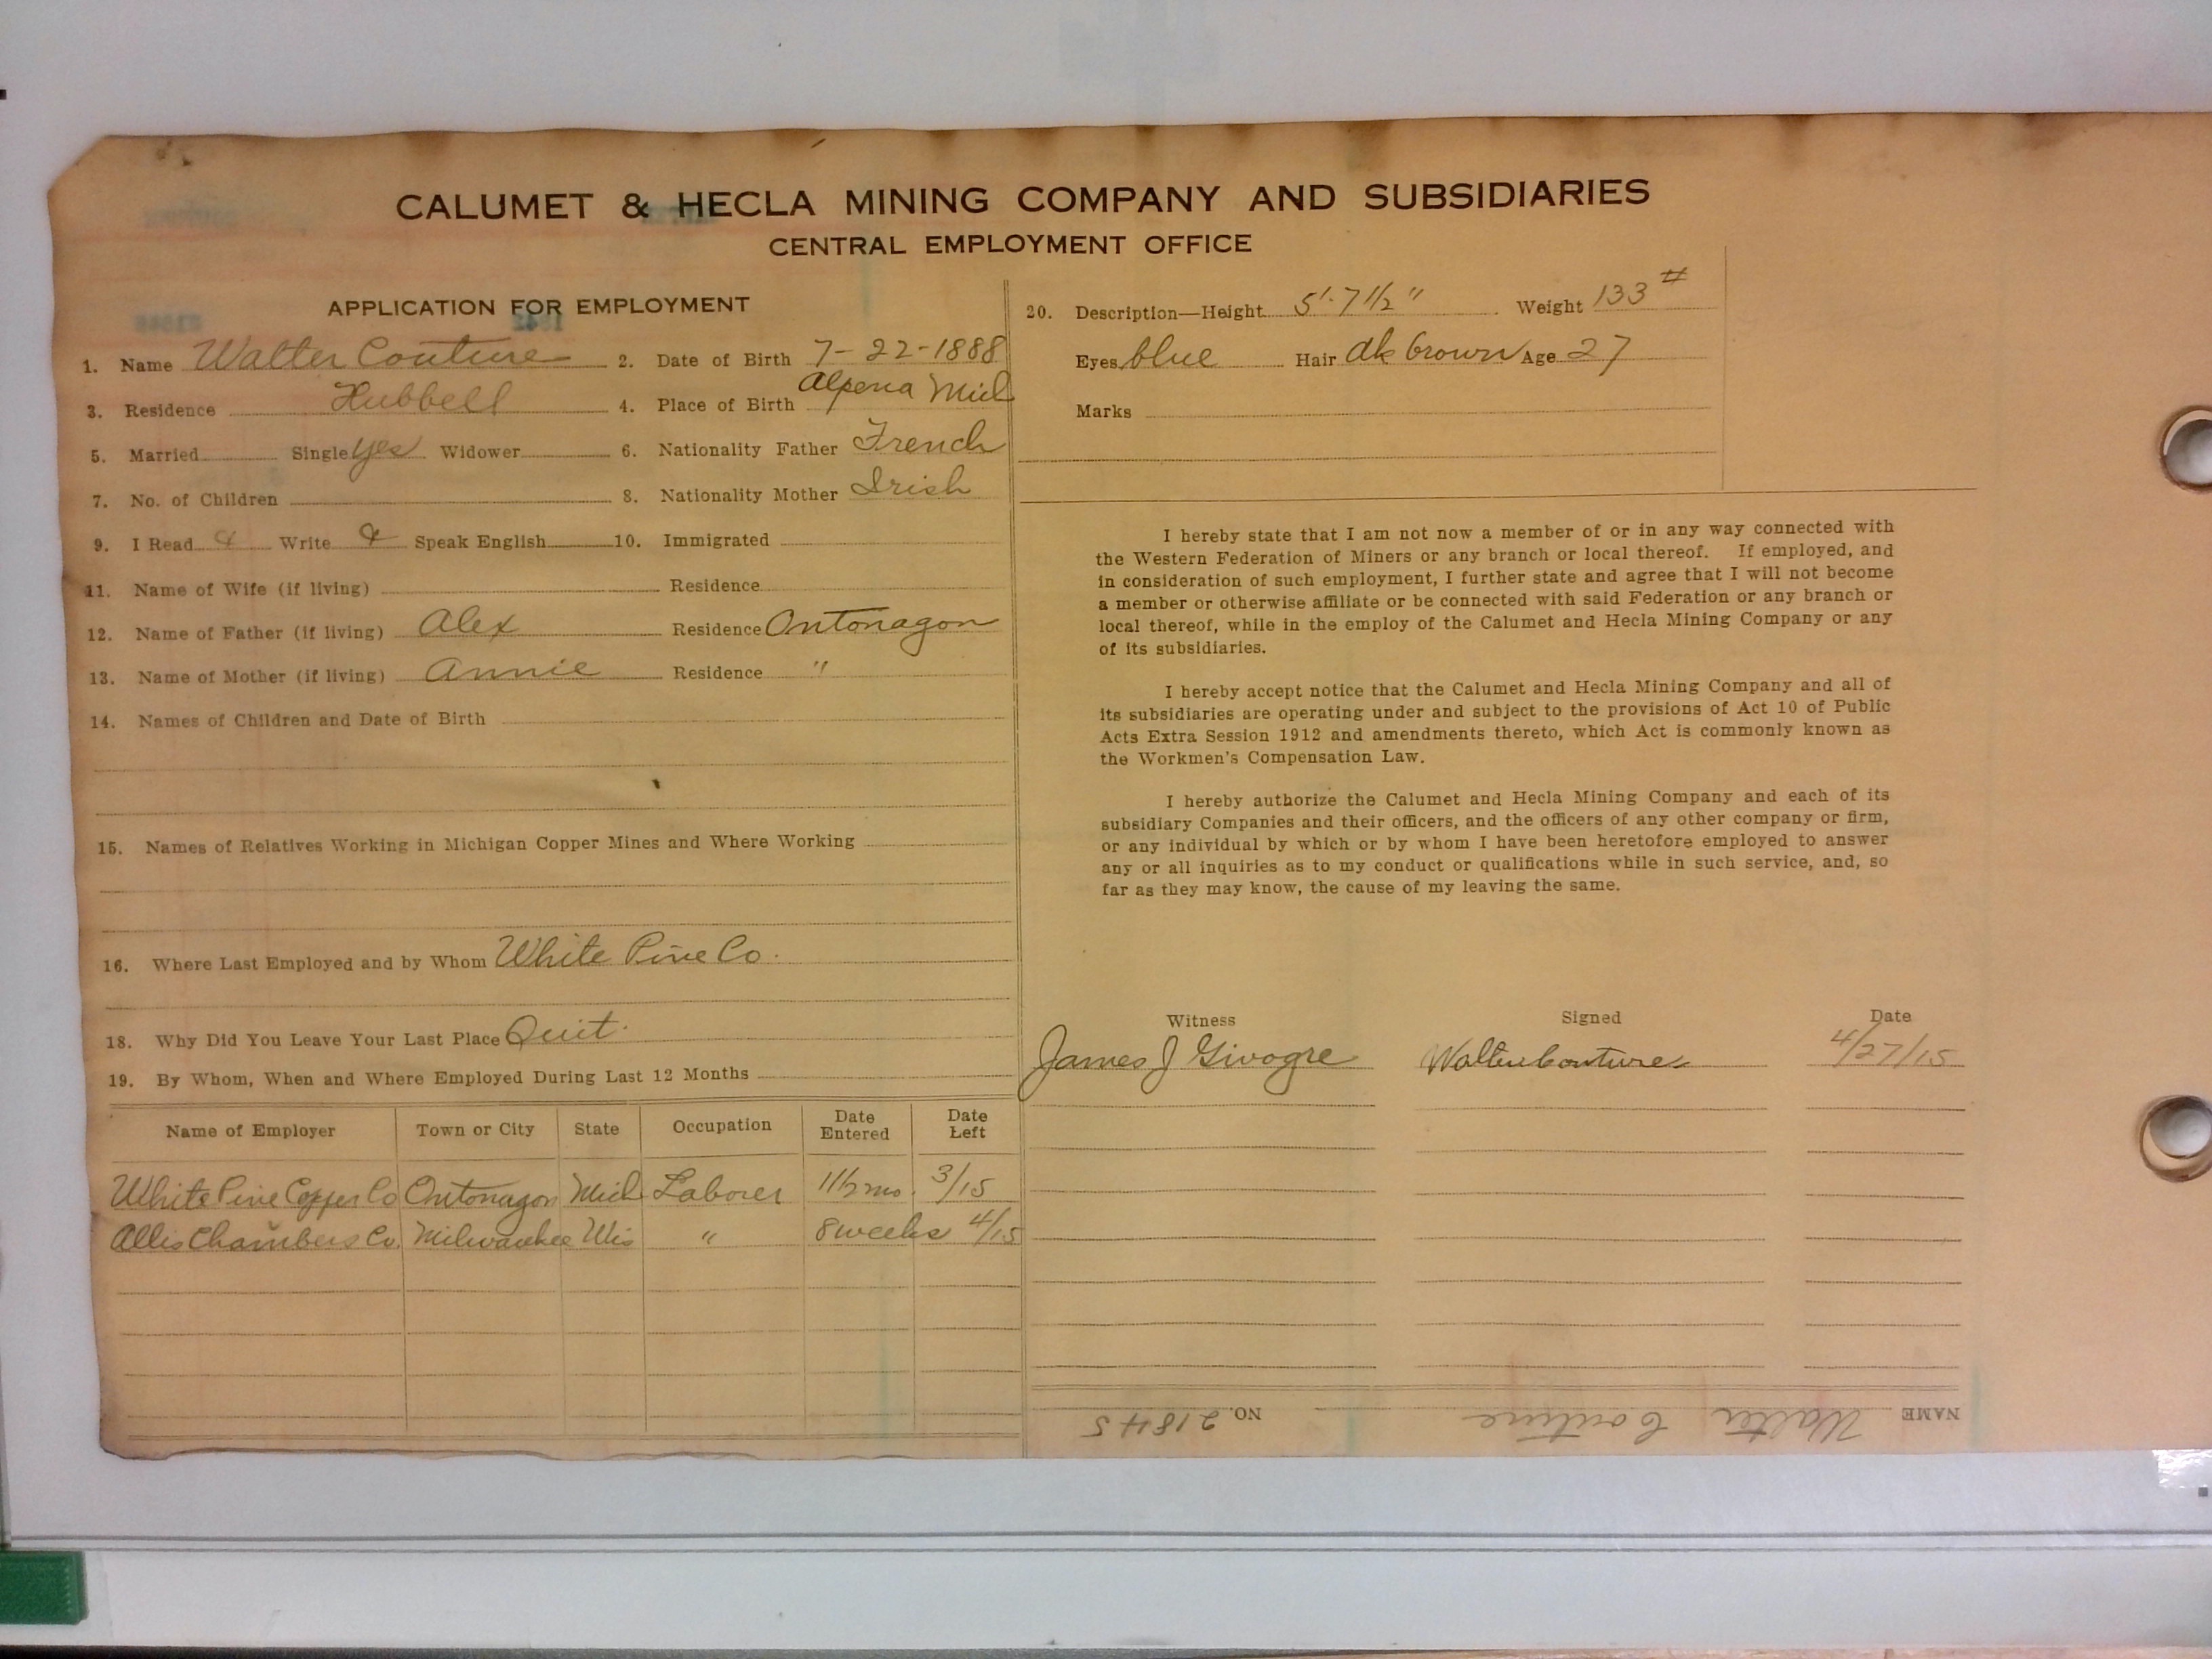 CALUMET & HECLA MINING COMPANY AND SUBSIDIARIES
CENTRAL EMPLOYMENT OFFICE
APPLICATION FOR EMPLOYMENT
1. Name Walter Couture 2. Date of Birth 7-22-1888
3. Residence Hubbell 4. Place of Birth Alpena Mich
5. Married Single yes Widower 6. Nationality Father French
7. No. of Children 8. Nationality Mother Irish
9. I Read & Write & Speak English 10. Immigrated
11. Name of Wife (if living) Residence
12. Name of Father (if living) Alex Residence Ontonagon
13. Name of Mother (if living) Annie Residence "
14. Names of Children and Date of Birth
15. Names of Relatives Working in Michigan Copper Mines and Where Working
16. Where Last Employed and by Whom White Pine Co.
18. Why Did You Leave Your Last Place Quit.
19. By Whom, When and Where Employed During Last 12 Months
Name of Employer Town or City State Occupation Date Entered Date Left
White Pine Copper Co Ontonagon Mich Laborer 1 1/2 mo. 3/15
Allis Chambers Co. Milwaukee Wis " 8 weeks 4/15
20. Description—Height 5'-7 1/2" Weight 133 #
Eyes blue Hair dk brown Age 27
Marks
I hereby state that I am not now a member of or in any way connected with
the Western Federation of Miners or any branch or local thereof. If employed, and
in consideration of such employment, I further state and agree that I will not become
a member or otherwise affiliate or be connected with said Federation or any branch or
local thereof, while in the employ of the Calumet and Hecla Mining Company or any
of its subsidiaries.
I hereby accept notice that the Calumet and Hecla Mining Company and all of
its subsidiaries are operating under and subject to the provisions of Act 10 of Public
Acts Extra Session 1912 and amendments thereto, which Act is commonly known as
the Workmen's Compensation Law.
I hereby authorize the Calumet and Hecla Mining Company and each of its
subsidiary Companies and their officers, and the officers of any other company or firm,
or any individual by which or by whom I have been heretofore employed to answer
any or all inquiries as to my conduct or qualifications while in such service, and, so
far as they may know, the cause of my leaving the same.
Witness Signed Date
James J Givogre Walter Couture 4/27/15
NAME Walter Couture NO. 21845